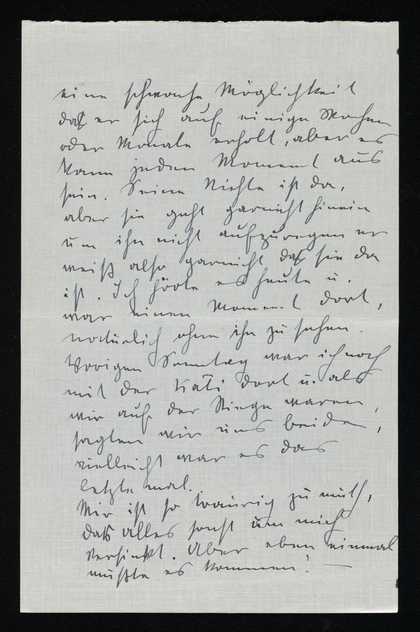 eine schwache Möglichkeit
daß er sich auf einige Wochen
oder Monate erholt, aber es
kann jeden Moment aus
sein. Seine Nichte ist da,
aber sie geht garnicht hinein
um ihn nicht aufzuregen er
weiß also garnicht daß sie da
ist. Ich hörte es heute u.
war einen Moment dort,
natürlich ohne ihn zu sehen.
Vorigen Sonntag war ich noch
mit der Käti dort u. als
wir auf der Stiege waren,
sagten wir uns beiden,
vielleicht war es das
letzte mal.
Mir ist so traurig zu muth,
daß alles sonst um mich
versinkt. Aber eben einmal
mußte es kommen! —